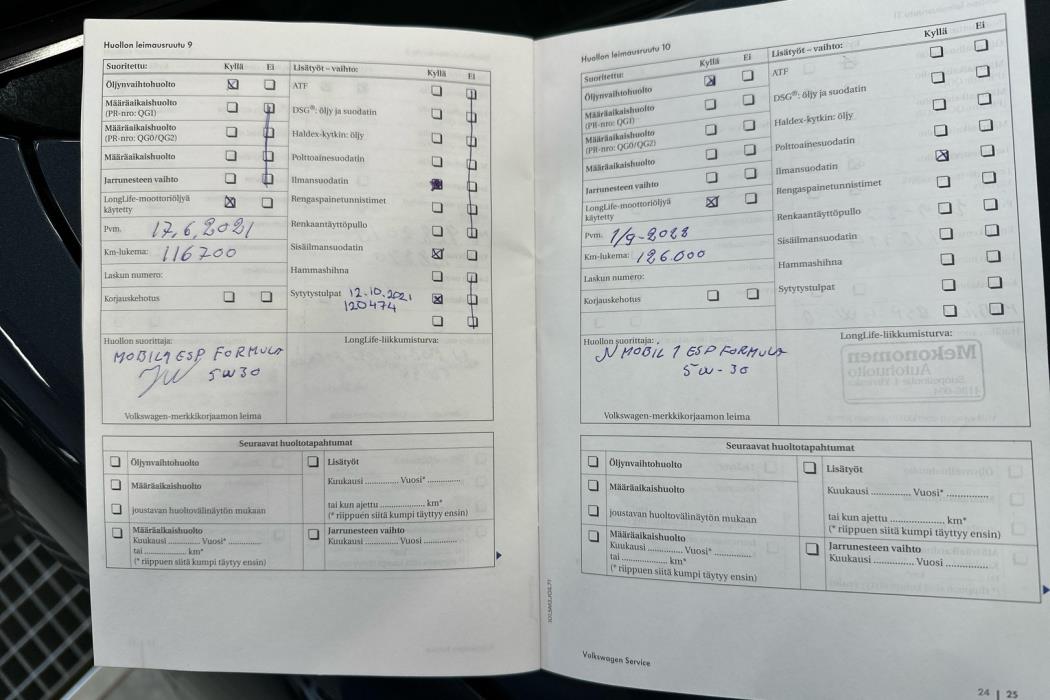 Huollon leimausruutu 9
Suoritettu: Kyllä Ei
Öljynvaihtohuolto
Määräaikaishuolto
(PR-nro: QGI)
Määräaikaishuolto
(PR-nro: QG0/QG2)
Määräaikaishuolto
Jarrunesteen vaihto
LongLife-moottoriöljyä
käytetty
Pvm. 17.6.2021
Km-lukema: 116700
Laskun numero:
Korjauskehotus
Lisätyöt – vaihto: Kyllä Ei
ATF
DSG®: öljy ja suodatin
Haldex-kytkin: öljy
Polttoainesuodatin
Ilmansuodatin
Rengaspainetunnistimet
Renkaantäyttöpullo
Sisäilmansuodatin
Hammashihna
Sytytystulpat 12.10.2021
120474
Huollon suorittaja:
MOBIL1 ESP FORMULA
5W30
LongLife-liikkumisturva:
Volkswagen-merkkikorjaamon leima
Seuraavat huoltotapahtumat
Öljynvaihtohuolto
Määräaikaishuolto
joustavan huoltovälinäytön mukaan
Määräaikaishuolto
Kuukausi ............ Vuosi* ............
tai ................ km*
(* riippuen siitä kumpi täytyy ensin)
Lisätyöt
Kuukausi ............ Vuosi* ............
tai kun ajettu ................ km*
(* riippuen siitä kumpi täyttyy ensin)
Jarrunesteen vaihto
Kuukausi ............ Vuosi ............
Huollon leimausruutu 10
Suoritettu: Kyllä Ei
Öljynvaihtohuolto
Määräaikaishuolto
(PR-nro: QGI)
Määräaikaishuolto
(PR-nro: QG0/QG2)
Määräaikaishuolto
Jarrunesteen vaihto
LongLife-moottoriöljyä
käytetty
Pvm. 1/9-2022
Km-lukema: 126.000
Laskun numero:
Korjauskehotus
Lisätyöt – vaihto: Kyllä Ei
ATF
DSG®: öljy ja suodatin
Haldex-kytkin: öljy
Polttoainesuodatin
Ilmansuodatin
Rengaspainetunnistimet
Renkaantäyttöpullo
Sisäilmansuodatin
Hammashihna
Sytytystulpat
Huollon suorittaja:
MOBIL 1 ESP FORMULA
5W-30
LongLife-liikkumisturva:
Mekonomen
Autohuolto
Volkswagen-merkkikorjaamon leima
Seuraavat huoltotapahtumat
Öljynvaihtohuolto
Määräaikaishuolto
joustavan huoltovälinäytön mukaan
Määräaikaishuolto
Kuukausi ............ Vuosi* ............
tai ................ km*
(* riippuen siitä kumpi täytyy ensin)
Lisätyöt
Kuukausi ............ Vuosi* ............
tai kun ajettu ................ km*
(* riippuen siitä kumpi täyttyy ensin)
Jarrunesteen vaihto
Kuukausi ............ Vuosi ............
Volkswagen Service
24 | 25